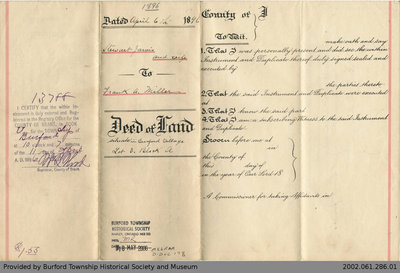 1896
Dated April 6th 189
Stewart
and wife
To
Frank A. Miller
Deed of Land
situate in Burford Village
Lot D. Block
13788
I CERTIFY that the within Instrument is duly entered and Registered in the Registry Office for the
COUNTY OF BRANT, in BOOK
for the
Burford
at 10 o'clock and
of the 11 day of
A.D. 189
Registrar, County of Brant.
1.55
BURFORD TOWNSHIP
HISTORICAL SOCIETY
MAY 2006
County of
To Wit:
make oath and say
1. That I was personally present and did see the within
Instrument and Duplicate thereof duly signed sealed and
executed by
the parties thereto
2. That the said Instrument and Duplicate were executed
at
3. That I know the said part
4. That I am a subscribing Witness to the said Instrument
and Duplicate
Sworn before me at
in the County of
this day of
in the year of Our Lord 18
A Commissioner for taking Affidavits in
Provided by Burford Township Historical Society and Museum
2002.061.286.01